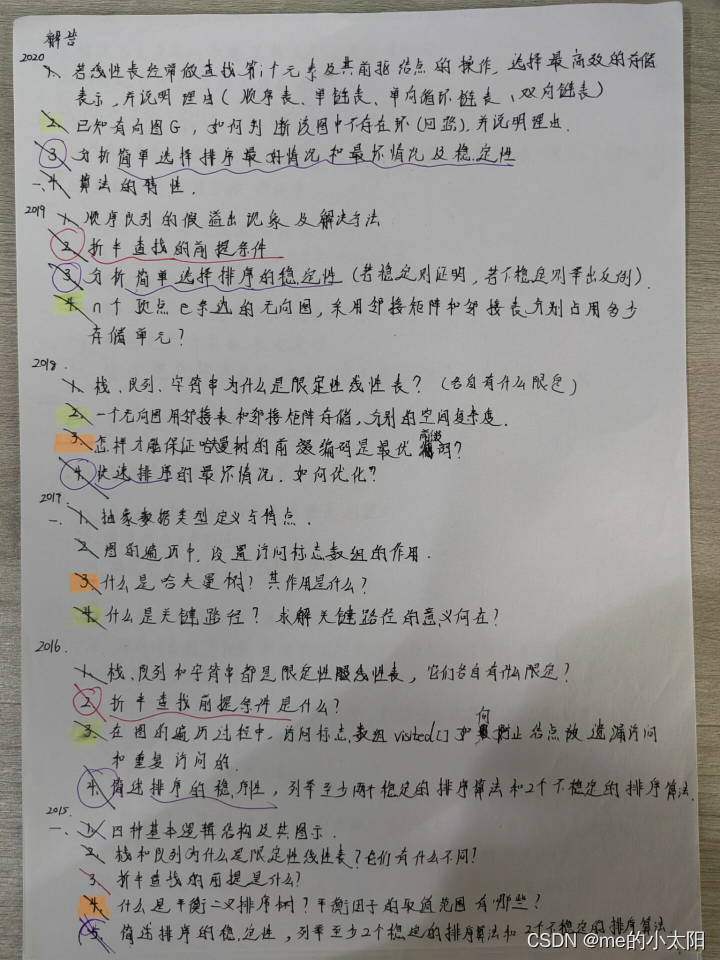 解答
2020
1. 若线性表经常做查找第i个元素及其前驱结点的操作,选择最高效的存储
表示,并说明理由(顺序表、单链表、单向循环链表、双向链表)
2. 已知有向图G,如何判断该图中不存在环(回路).并说明理由.
3 分析简单选择排序最好情况和最坏情况及稳定性
一、4. 算法的特性.
2019 1. 顺序队列的假溢出现象及解决方法
2. 折半查找的前提条件
3 分析简单选择排序的稳定性(若稳定则证明,若不稳定则举出反例).
4. n个顶点e条边的无向图,采用邻接矩阵和邻接表分别占用多少
存储单元?
2018.
1. 栈、队列、字符串为什么是限定性线性表?(各自有什么限定)
2. 一个无向图用邻接表和邻接矩阵存储,分别的空间复杂度.
3. 怎样才能保证哈夫曼树的前缀编码是最优前缀编码?
4. 快速排序的最坏情况.如何优化?
2017.
一、1. 抽象数据类型定义与特点.
2. 图的遍历中,设置访问标志数组的作用.
3. 什么是哈夫曼树?其作用是什么?
4. 什么是关键路径?求解关键路径的意义何在?
2016.
1. 栈、队列和字符串都是限定性线性表,它们各自有什么限定?
2. 折半查找前提条件是什么?
3. 在图的遍历过程中,访问标志数组visited[]如何防止结点被遗漏访问
和重复访问的.
4. 简述排序的稳定性,列举至少两个稳定的排序算法和2个不稳定的排序算法.
2015.
一、1. 四种基本逻辑结构及其图示.
2. 栈和队列为什么是限定性线性表?它们有什么不同?
3. 折半查找的前提是什么?
4. 什么是平衡二叉排序树?平衡因子的取值范围有哪些?
5. 简述排序的稳定性,列举至少2个稳定的排序算法和2个不稳定的排序算法
CSDN @me的小太阳